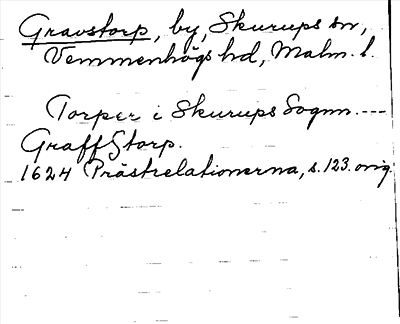 Gravstorp, by, Skurups sn,
Vemmenhögs hd, Malm. l.
Torper i Skurups Sognn. ---
GraffStorp.
1624 Prästrelationerna, s. 123. orig.